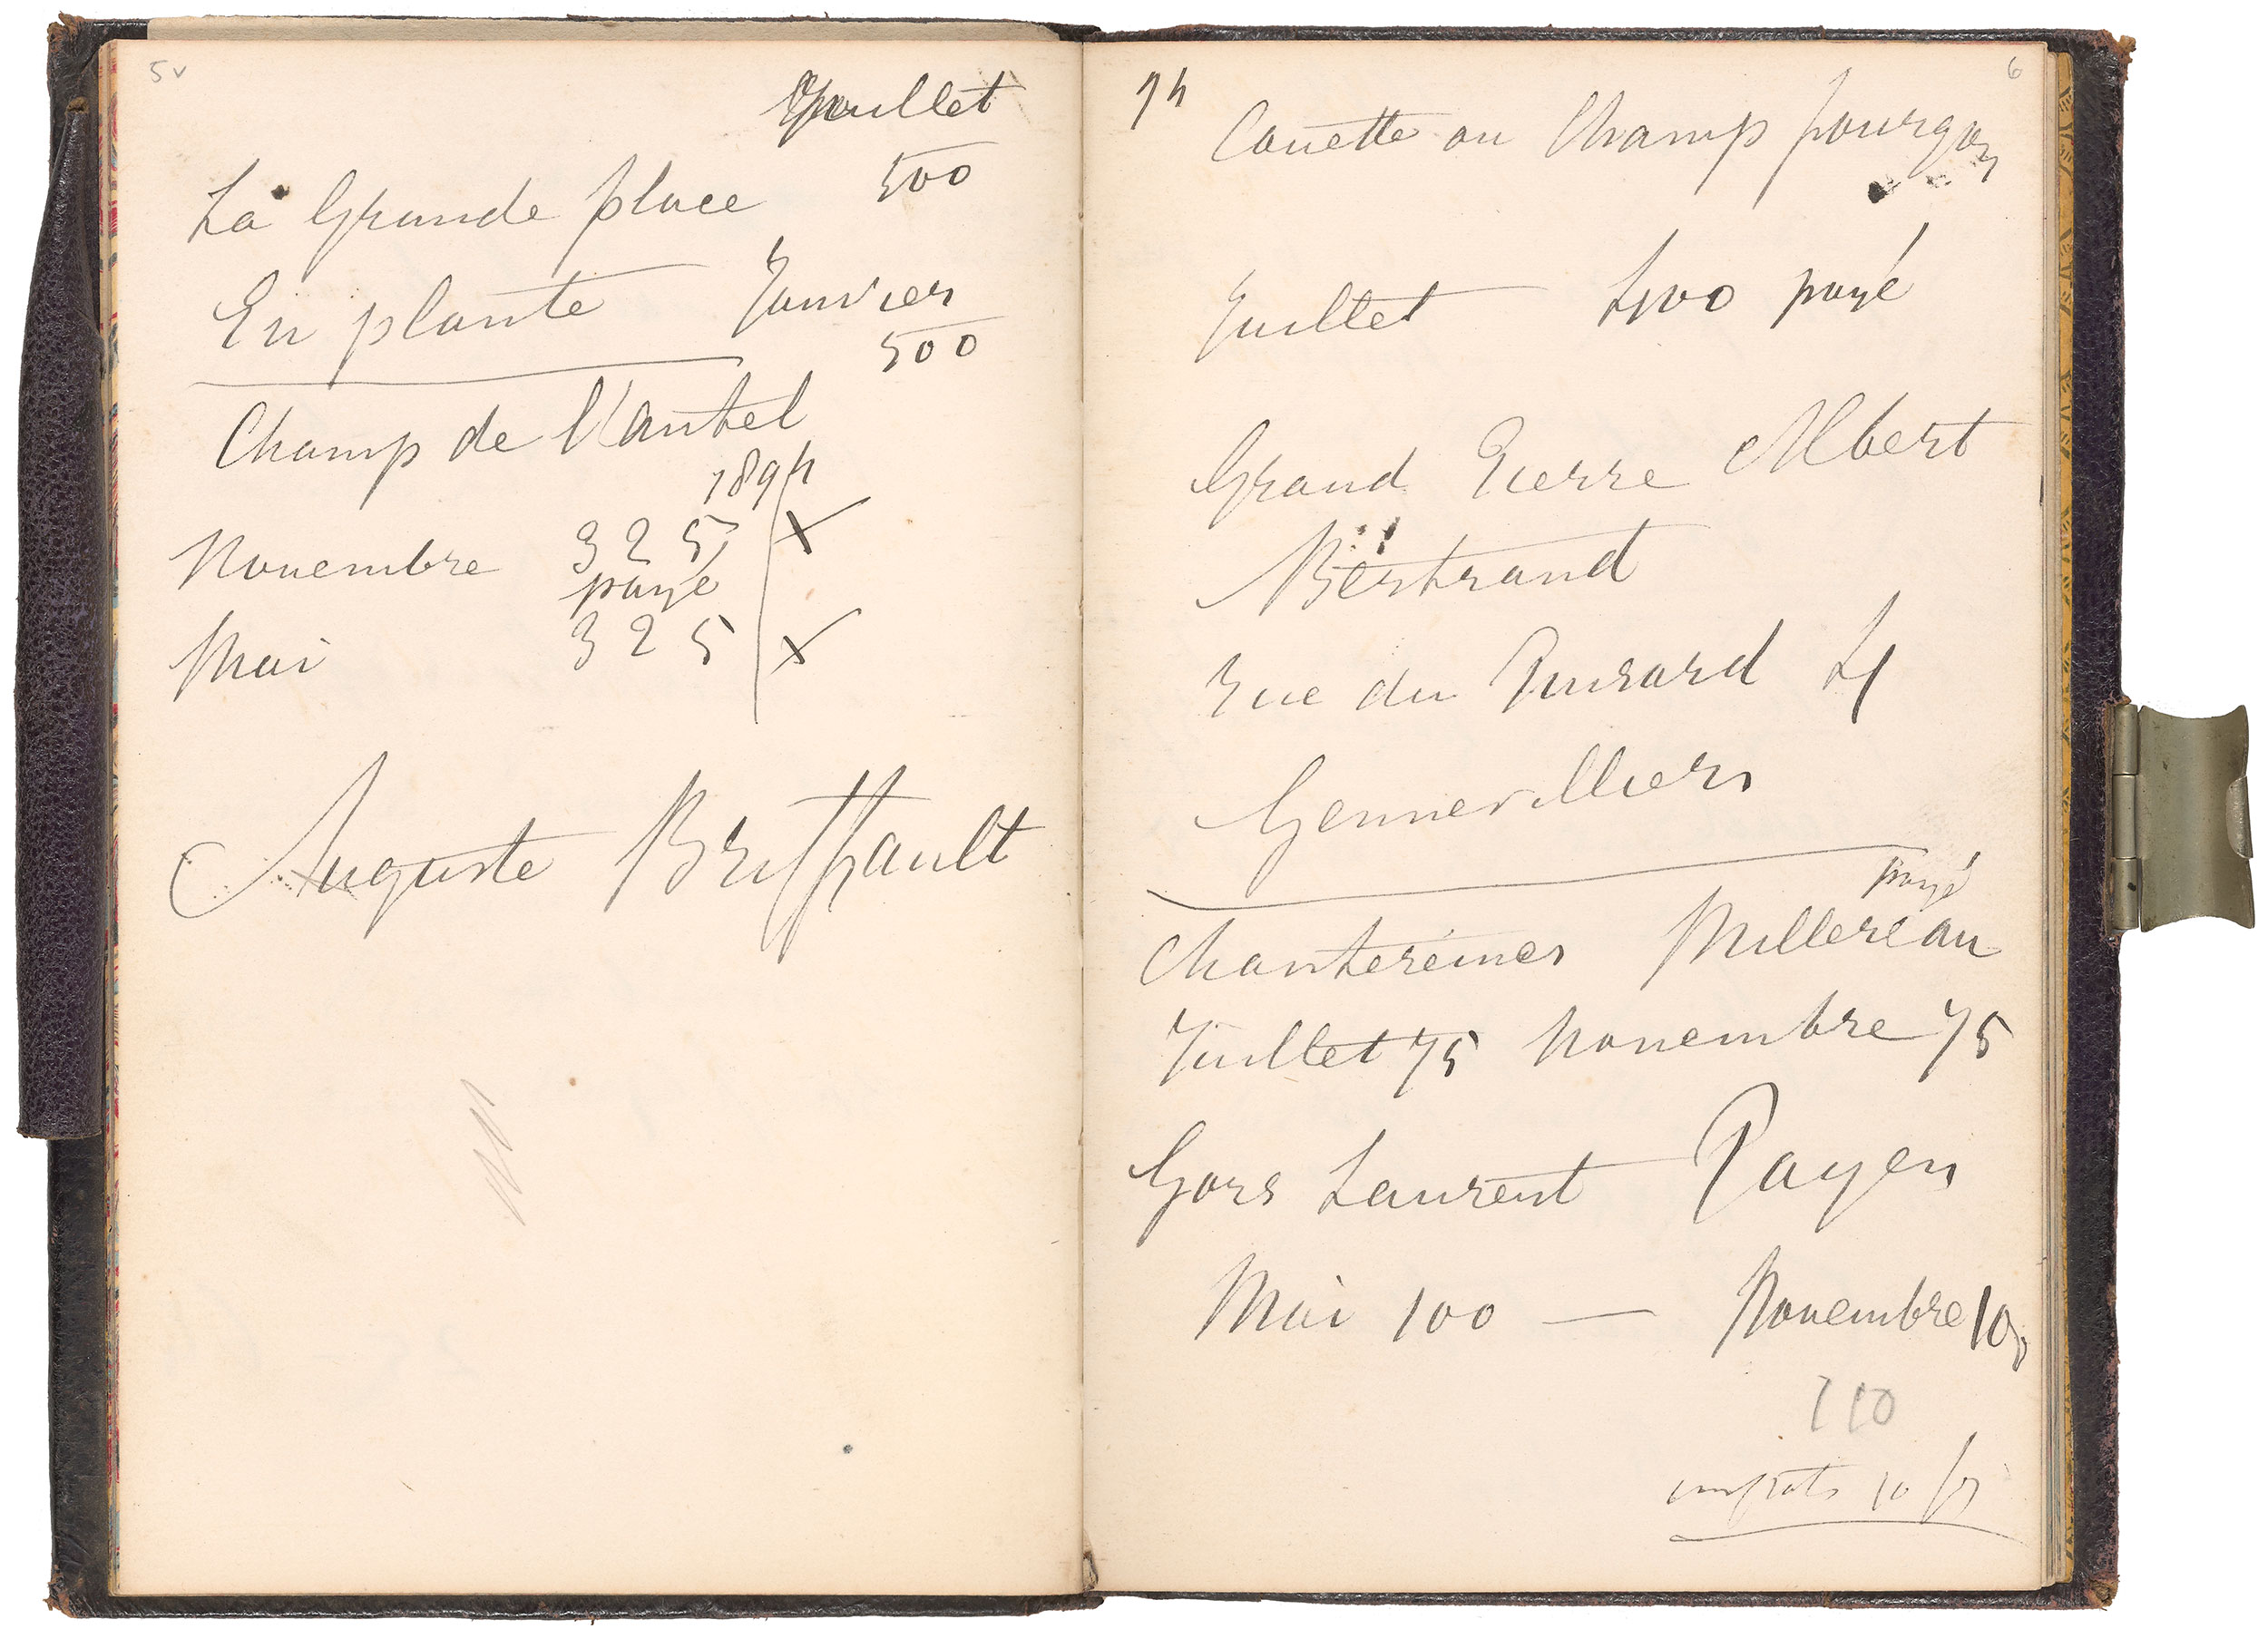 5v
Juillet
La Grande place 500
En plante Janvier
500
Champ de l'autel
1894
Novembre 325 X
payé
Mai 325 X
Auguste Briffault
6
94
Couette ou Champ fourgon
Juillet 400 payé
Grand Pierre Albert
Bertrand
Rue du Puisard 4
Gennevilliers
payé
Chantereines Millereau
Juillet 75 Novembre 75
Gors Laurent Payen
Mai 100 — Novembre 100
110
impots 10 f